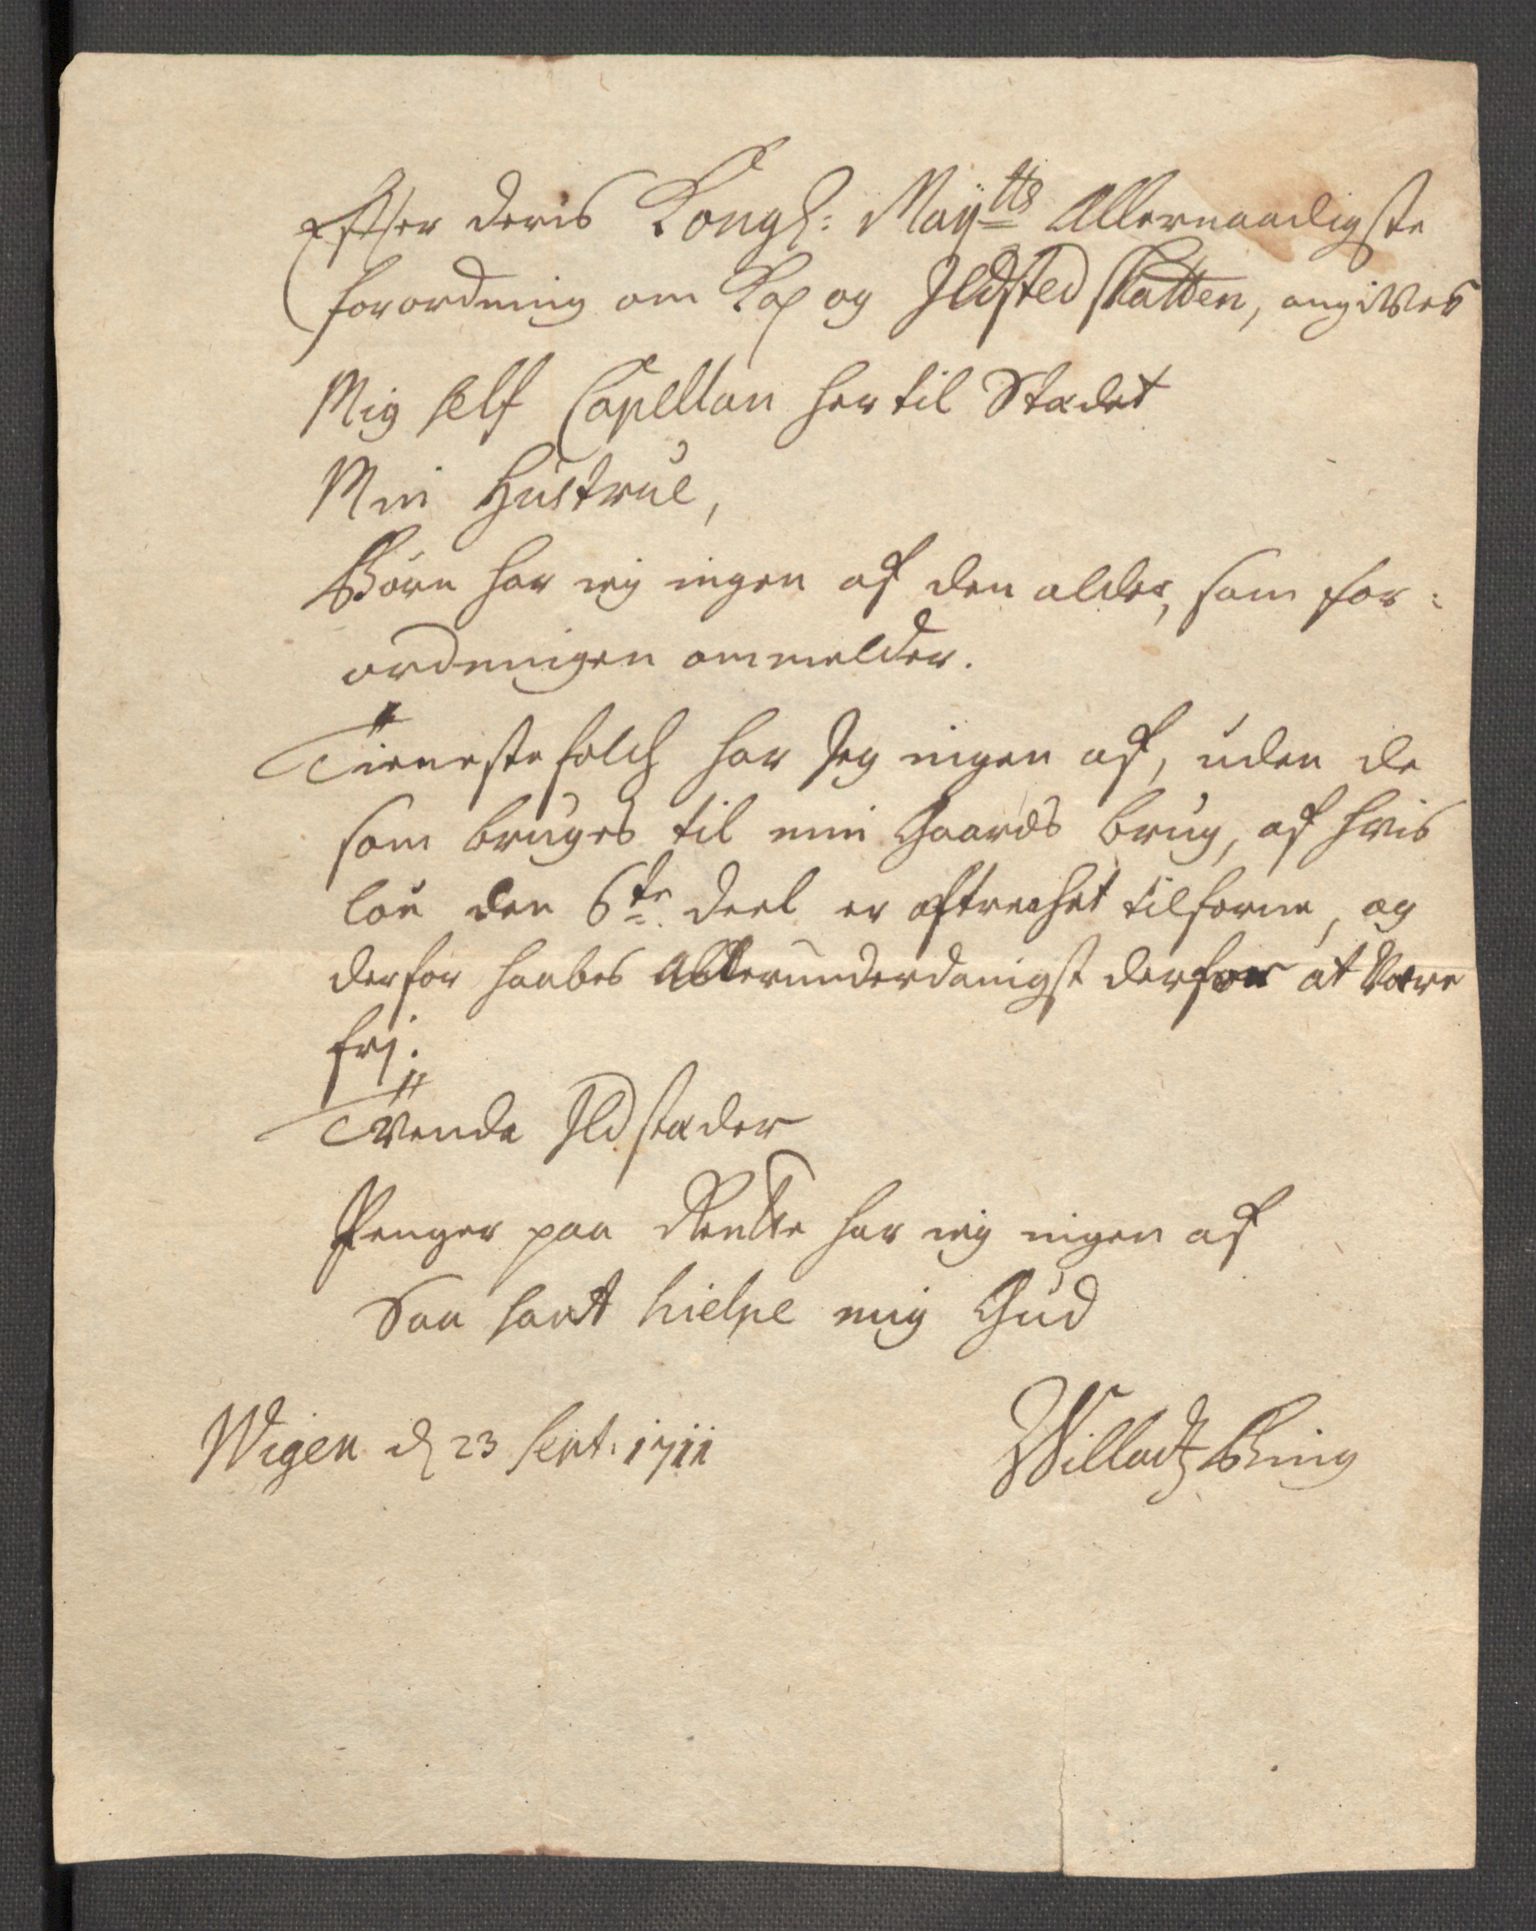 Efter deris Kongl: Maÿtts Allernaadigste
forordning om Kop og Ildsted skatten, angives
Mig self Capellan her til Stædet
Min Hustrue,
Børn har ieg ingen af den alder, som for:
ordningen ommelder.
Tienestefolch har Jeg ingen af, uden de
som bruges til min Gaards brug, af hvis
lön den 6te deel er aftrechet tilforne, og
derfor haabes Allerunderdanigst derfor at være
frj.
Tvende Ildstæder
Penger paa Rentte har ieg ingen af
Saa sant hielpe mig Gud
Wigen d 23 Sept: 1711
Willadtz Bing